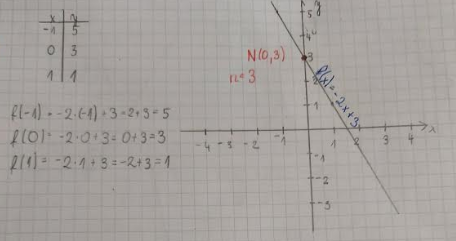 x y
-1 5
0 3
1 1
f(-1) = -2·(-1)+3=2+3=5
f(0)= -2·0+3=0+3=3
f(1)= -2·1+3=-2+3=1
N(0,3)
n=3
f(x)=-2x+3
y
5
4
3
2
1
-4 -3 -2 -1 1 2 3 4 x
-1
-2
-3